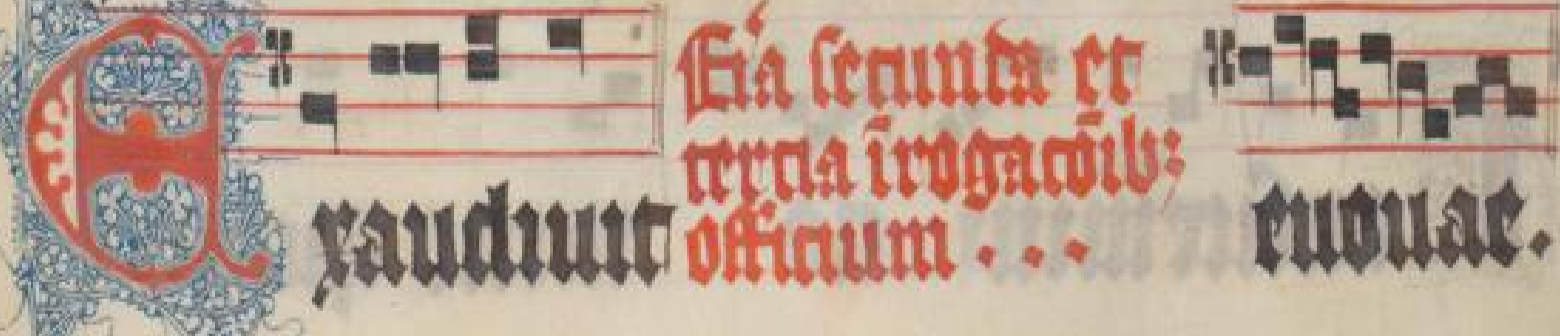 Exaudiuit
Fi'a secunda et
tercia ī rogacōib:
officium . . .
euouae.